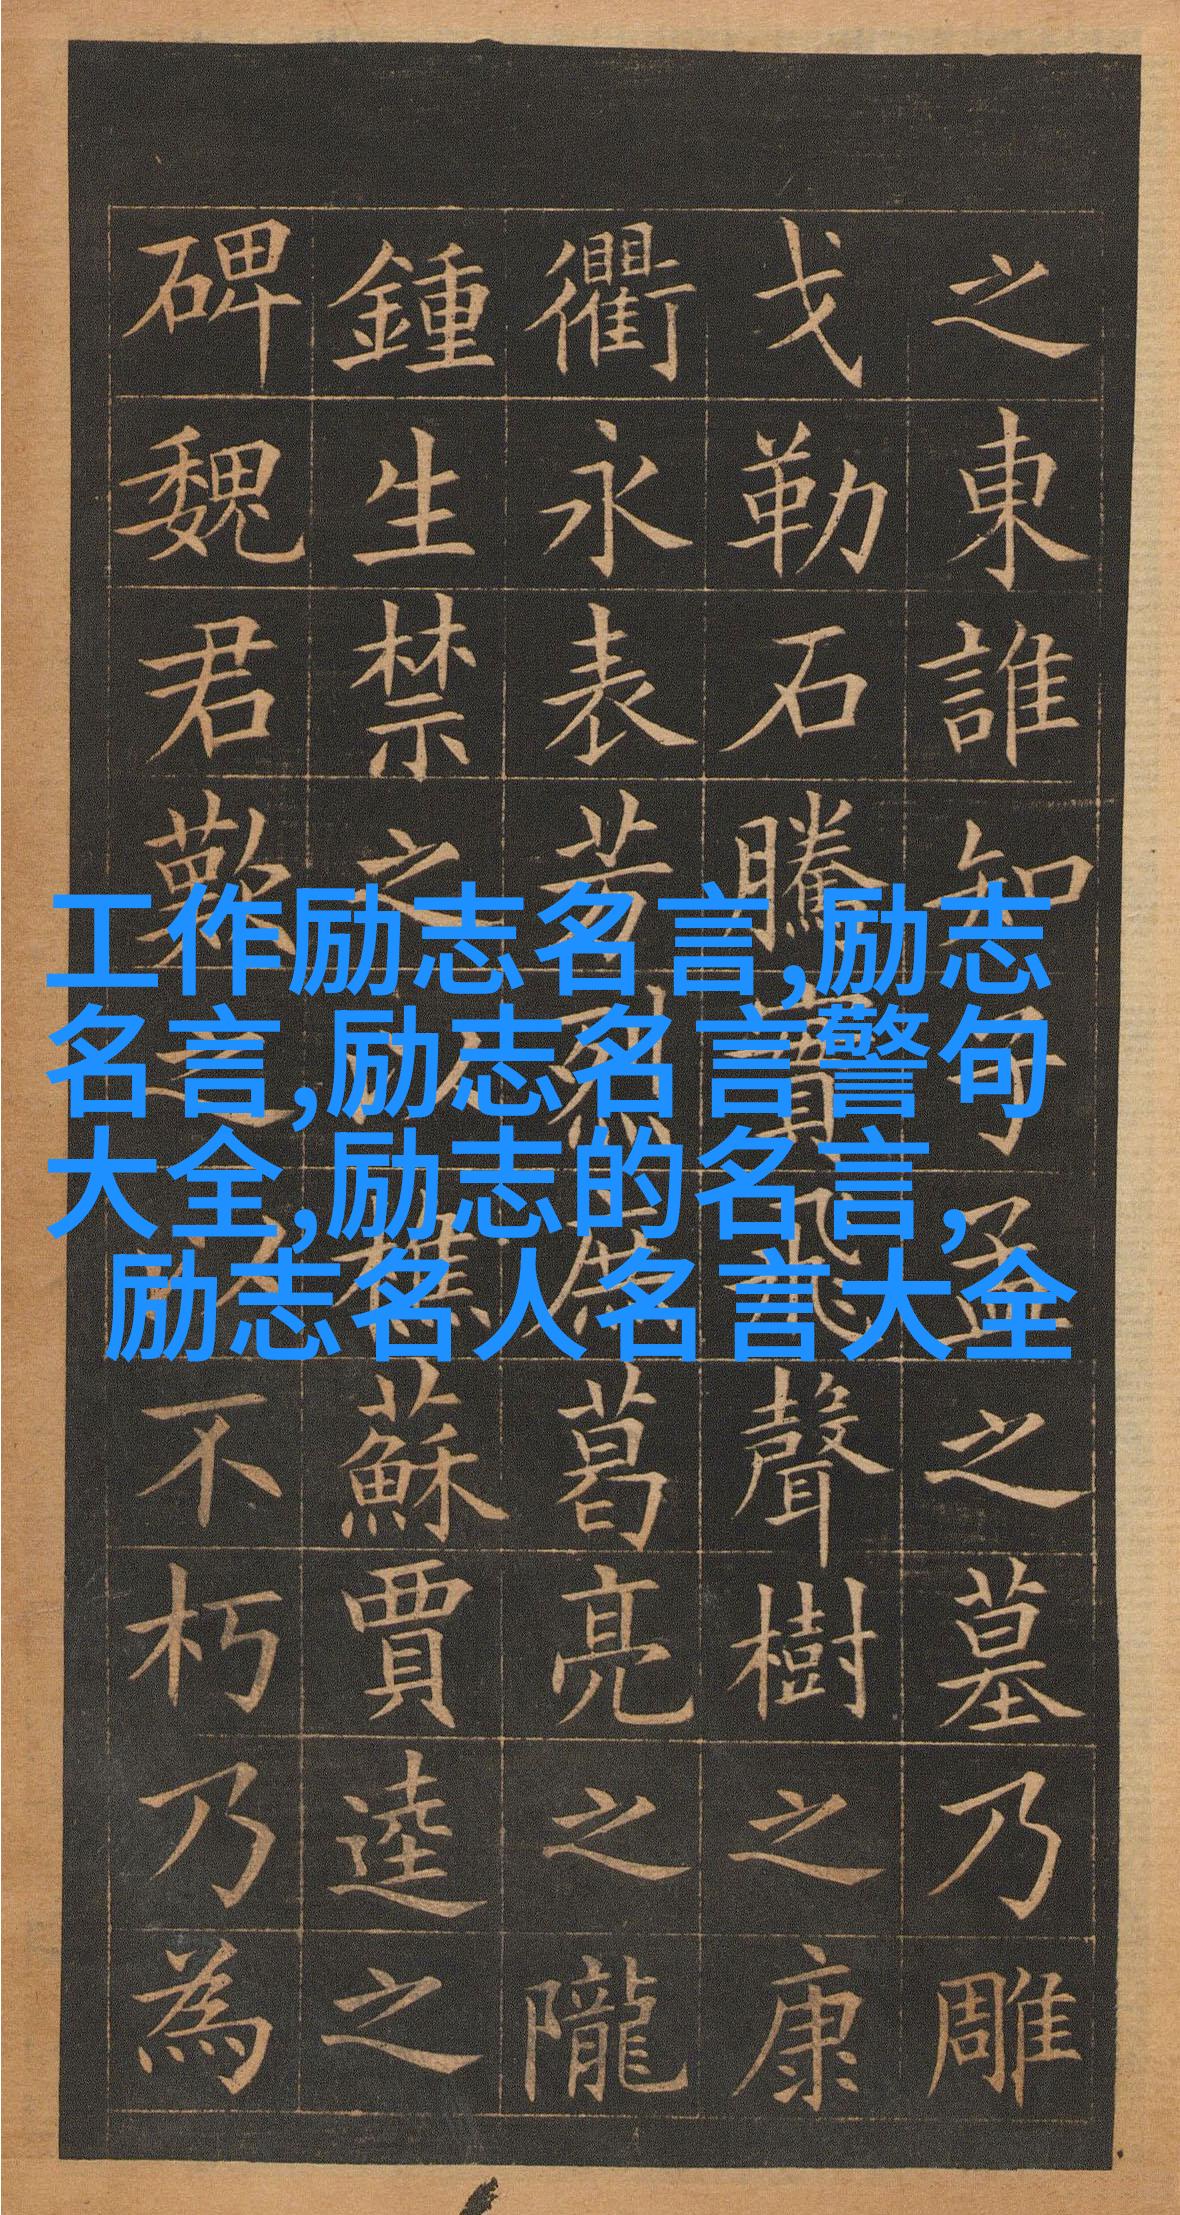 之東誰知子孟之墓乃雕
戈勒石騰實飛聲樹之康
衢永表芳烈庶葛亮之隴
鍾生禁之以樵蘇賈逵之
碑魏君歎之以不朽乃為
工作励志名言,励志
名言,励志名言警句
大全,励志的名言,
励志名人名言大全